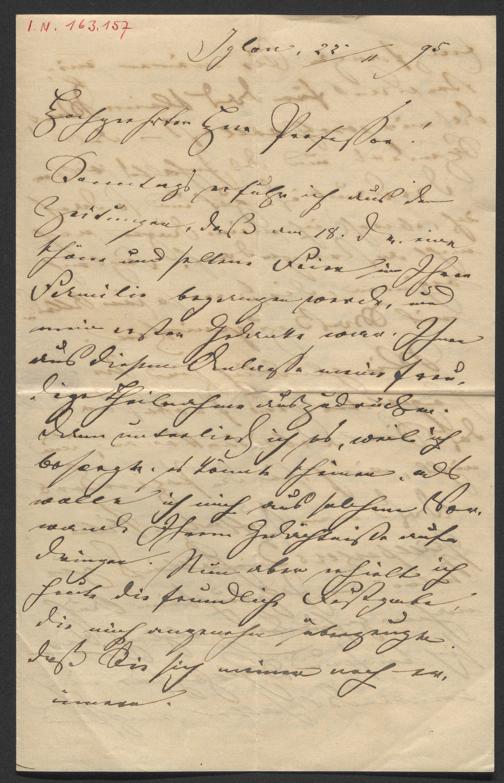 I. N. 163.157
Iglau, 22/11 95
Hochgeehrter Herr Professor!
Sonntags erfuhr ich aus den
Zeitungen, daß am 18. d. M. eine
schöne und seltene Feier in Ihrer
Familie begangen werde, und
mein erster Gedanke war, Ihnen
aus diesem Anlasse meine freu-
dige Theilnahme auszudrücken.
Dann unterließ ich es, weil ich
besorgte, es könnte scheinen, als
wolle ich mich aus solchem Vor-
wand Ihrem Gedächtnisse auf-
drängen. Nun aber erhielt ich
heute die freundliche Festgabe,
die mich angenehm überzeugte,
daß Sie sich meiner noch er-
innern.